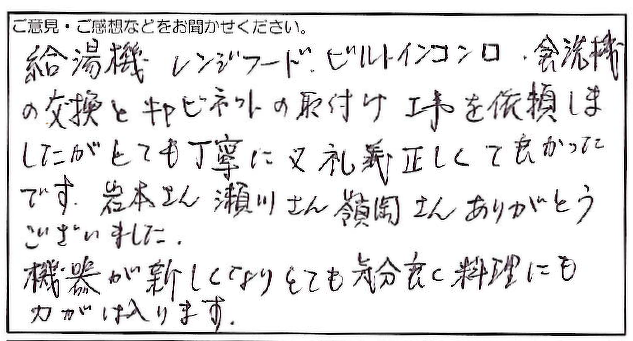 ご意見・ご感想などをお聞かせください。
給湯機 レンジフード.ビルトインコンロ.食洗機
の交換とキャビネットの取付け工事を依頼しま
したがとても丁寧に又礼義正しくて良かった
です.岩本さん 瀬川さん 嶺岡さん ありがとう
ございました.
機器が新しくなりとても気分良く料理にも
力がは入ります.